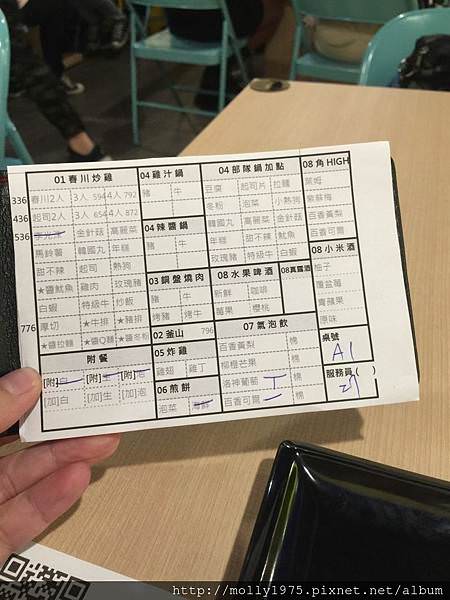 01 春川炒雞
336 春川2人 3人 594 4人 792
436 起司2人 3人 654 4人 872
536 金針菇 高麗菜
馬鈴薯 韓國丸 年糕
甜不辣 起司 熱狗
★醬魷魚 雞肉 玫瑰豬
白蝦 特級牛 炒飯
776 厚切 ★牛排 ★豬排
★醬拉麵 ★醬Q麵 ★醬冬粉
附餐
[附]白 [附]生 [附]泡
[加]白 [加]生 [加]泡
04 雞汁鍋
豬 牛
04 辣醬鍋
豬 牛
03 銅盤燒肉
豬 牛
烤豬 烤牛
02 釜山 796
05 炸雞
雞翅 雞丁
06 煎餅
泡菜 海鮮
04 部隊鍋加點
豆腐 起司片 拉麵
冬粉 泡菜 小熱狗
韓國丸 高麗菜 魷魚
年糕 金針菇 雞肉
甜不辣 魷魚 牛
玫瑰豬 特級牛 白蝦
08 水果啤酒
新鮮 咖啡
莓果 櫻桃
08真露酒
07 氣泡飲
百香黃梨 棉
柳橙芒果 棉
洛神葡萄 棉
百香可爾 棉
08 角HIGH
萊姆
紫蘇梅
百香黃梨
百香可爾
08 小米酒
柚子
覆盆莓
青蘋果
原味
桌號
A1
服務員( )
http://molly1975.pixnet.net/album